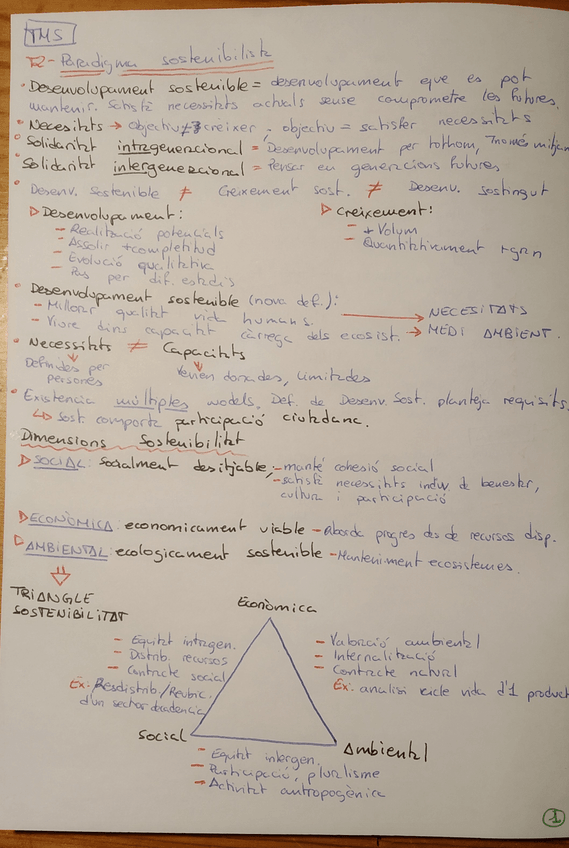 TMS
T2- Paradigma sostenibilista
• Desenvolupament sostenible = desenvolupament que es pot
mantenir. Satisfà necessitats actuals sense comprometre les futures.
• Necesitats → objectiu ≠ créixer, objectiu = satisfer necessitats
• Solidaritat intrageneracional = Desenvolupament per tothom, només
• Solidaritat intergeneracional = Pensar en generacions futures
• Desenv. Sostenible ≠ Creixement Sost. ≠ Desenv. Sostingut
▷ Desenvolupament: ▷ Creixement:
- Realització potencials - + Volum
- Assolir + completitud - Quantitativament + gran
- Evolució qualitativa
- Pas per dif. estadis
• Desenvolupament sostenible (nova def.):
- Millorar qualitat vida humans. → NECESITATS
- Viure dins capacitat càrrega dels ecosist. → MEDI AMBIENT.
• Necessitats ≠ Capacitats
Definides per venen donades, limitades
persones
• Existència múltiples models. Def. de Desenv. Sost. planteja requisits.
↳ Sost. comporta participació ciutadana.
Dimensions Sostenibilitat
▷ SOCIAL: Socialment desitjable, - manté cohesió social
- satisfà necessitats indiv. de benestar,
cultura i participació
▷ ECONÒMICA: economicament viable - Aborda progrés des de recursos disp.
▷ AMBIENTAL: ecologicament sostenible - Manteniment ecosistemes.
⇓
TRIANGLE
SOSTENIBILITAT
Econòmica
- Equitat intragen. - Valoració ambiental
- Distrib. recursos - Internalització
- Contracte social - Contracte natural
Ex: Redistrib./Reubic. Ex: analisi cicle vida d'1 product
d'un sector decadència
Social Ambiental
- Equitat intergen.
- Participació, pluralisme
- Activitat antropogènica
1